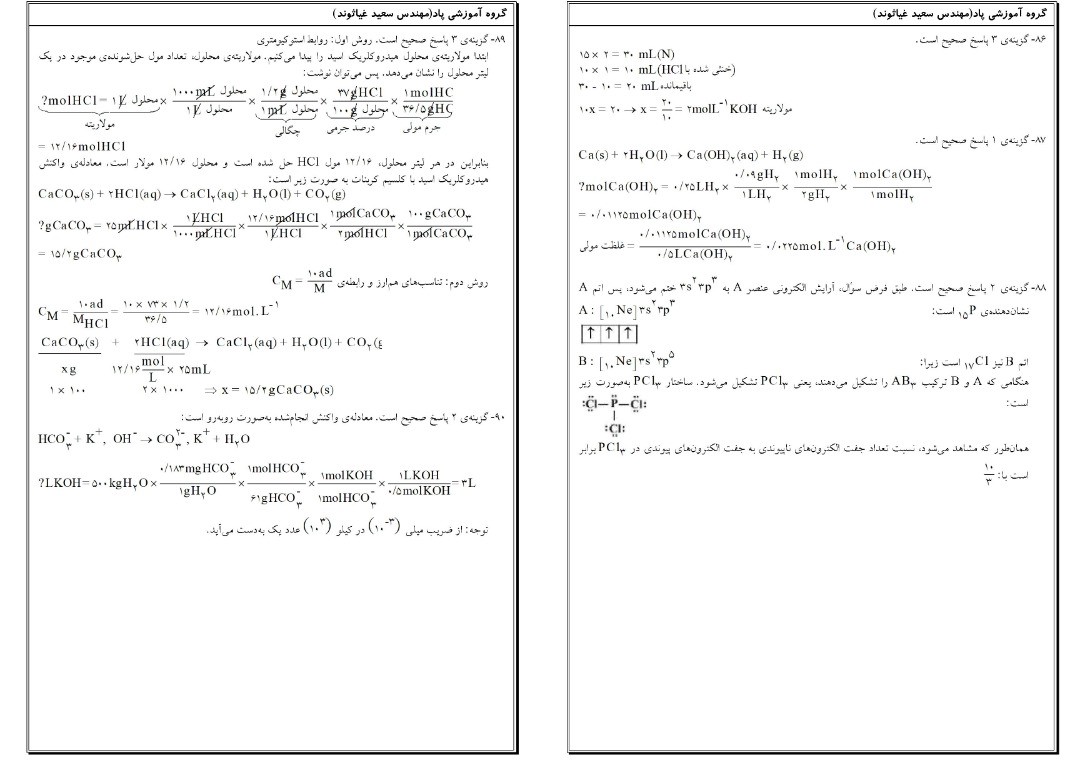 گروه آموزشی پاد(مهندس سعید غیاثوند)
۸۶- گزینه‌ی ۳ پاسخ صحیح است.
۱۵ × ۲ = ۳۰ mL(N)
۱۰ × ۱ = ۱۰ mL(HCl خنثی شده با)
۳۰ - ۱۰ = ۲۰ mL باقیمانده
۱۰x = ۲۰ → x = ۲۰/۱۰ = ۲molL⁻¹ KOH مولاریته
۸۷- گزینه‌ی ۱ پاسخ صحیح است.
Ca(s) + ۲H₂O(l) → Ca(OH)₂(aq) + H₂(g)
?molCa(OH)₂ = ۰/۲۵LH₂ × ۰/۰۹gH₂/۱LH₂ × ۱molH₂/۲gH₂ × ۱molCa(OH)₂/۱molH₂
= ۰/۰۱۱۲۵molCa(OH)₂
غلظت مولی = ۰/۰۱۱۲۵molCa(OH)₂/۰/۵LCa(OH)₂ = ۰/۰۲۲۵mol.L⁻¹Ca(OH)₂
۸۸- گزینه‌ی ۲ پاسخ صحیح است. طبق فرض سؤال، آرایش الکترونی عنصر A به ۳s²۳p³ ختم می‌شود، پس اتم A
نشان‌دهنده‌ی ₁₅P است: A : [₁₀Ne]۳s²۳p³
↑ ↑ ↑
اتم B نیز ₁₇Cl است زیرا: B : [₁₀Ne]۳s²۳p⁵
هنگامی که A و B ترکیب AB₃ را تشکیل می‌دهند، یعنی PCl₃ تشکیل می‌شود. ساختار PCl₃ به‌صورت زیر
است:
:Cl—P—Cl:
|
:Cl:
همان‌طور که مشاهد می‌شود، نسبت تعداد جفت الکترون‌های ناپیوندی به جفت الکترون‌های پیوندی در PCl₃ برابر
است با: ۱۰/۳
گروه آموزشی پاد(مهندس سعید غیاثوند)
۸۹- گزینه‌ی ۳ پاسخ صحیح است. روش اول: روابط استوکیومتری
ابتدا مولاریته‌ی محلول هیدروکلریک اسید را پیدا می‌کنیم. مولاریته‌ی محلول، تعداد مول حل‌شونده‌ی موجود در یک
لیتر محلول را نشان می‌دهد. پس می‌توان نوشت:
?molHCl = ۱L محلول × ۱۰۰۰mL محلول/۱L محلول × ۱/۲g محلول/۱mL محلول × ۳۷gHCl/۱۰۰g محلول × ۱molHC/۳۶/۵gHC
مولاریته چگالی درصد جرمی جرم مولی
= ۱۲/۱۶molHCl
بنابراین در هر لیتر محلول، ۱۲/۱۶ مول HCl حل شده است و محلول ۱۲/۱۶ مولار است. معادله‌ی واکنش
هیدروکلریک اسید با کلسیم کربنات به صورت زیر است:
CaCO₃(s) + ۲HCl(aq) → CaCl₂(aq) + H₂O(l) + CO₂(g)
?gCaCO₃ = ۲۵mLHCl × ۱LHCl/۱۰۰۰mLHCl × ۱۲/۱۶molHCl/۱LHCl × ۱molCaCO₃/۲molHCl × ۱۰۰gCaCO₃/۱molCaCO₃
= ۱۵/۲gCaCO₃
روش دوم: تناسب‌های هم‌ارز و رابطه‌ی C_M = ۱۰ad/M
C_M = ۱۰ad/M_HCl = ۱۰ × ۷۳ × ۱/۲/۳۶/۵ = ۱۲/۱۶mol.L⁻¹
CaCO₃(s) + ۲HCl(aq) → CaCl₂(aq) + H₂O(l) + CO₂(g
xg ۱۲/۱۶ mol/L × ۲۵mL
۱ × ۱۰۰ ۲ × ۱۰۰۰ ⇒ x = ۱۵/۲gCaCO₃(s)
۹۰- گزینه‌ی ۲ پاسخ صحیح است. معادله‌ی واکنش انجام‌شده به‌صورت روبه‌رو است:
HCO₃⁻ + K⁺, OH⁻ → CO₃²⁻, K⁺ + H₂O
?LKOH = ۵۰۰kgH₂O × ۰/۱۸۳mgHCO₃⁻/۱gH₂O × ۱molHCO₃⁻/۶۱gHCO₃⁻ × ۱molKOH/۱molHCO₃⁻ × ۱LKOH/۰/۵molKOH = ۳L
توجه: از ضریب میلی (۱۰⁻³) در کیلو (۱۰³) عدد یک به‌دست می‌آید.